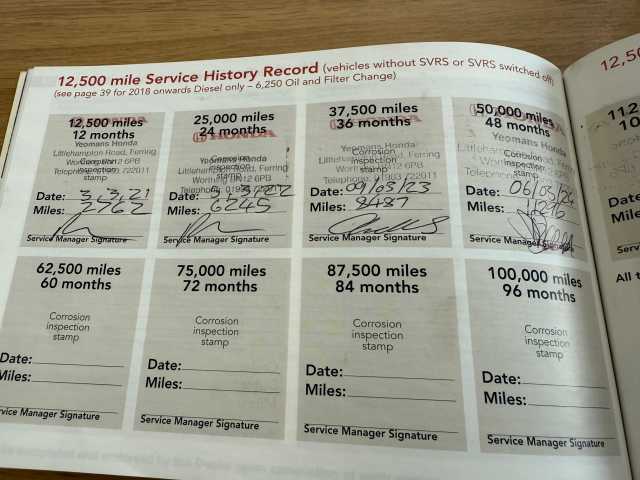 12,500 mile Service History Record (vehicles without SVRS or SVRS switched off)
(see page 39 for 2018 onwards Diesel only – 6,250 Oil and Filter Change)
12,500 miles
12 months
Yeomans Honda
Littlehampton Road, Ferring
Corrosion
inspection
stamp
Date: 3.3.21
Miles: 2762
Service Manager Signature
25,000 miles
24 months
HONDA
Yeomans Honda
Corrosion
inspection
stamp
Date: 3.3.22
Miles: 6245
Service Manager Signature
37,500 miles
36 months
HONDA
Yeomans Honda
Littlehampton Road, Ferring
Corrosion
inspection
stamp
Date: 09/03/23
Miles: 8487
Service Manager Signature
50,000 miles
48 months
Yeomans Honda
Corrosion
inspection
stamp
Date: 06/03/24
Miles: 11216
Service Manager Signature
62,500 miles
60 months
Corrosion
inspection
stamp
Date:
Miles:
Service Manager Signature
75,000 miles
72 months
Corrosion
inspection
stamp
Date:
Miles:
Service Manager Signature
87,500 miles
84 months
Corrosion
inspection
stamp
Date:
Miles:
Service Manager Signature
100,000 miles
96 months
Corrosion
inspection
stamp
Date:
Miles:
Service Manager Signature
12,50
112
10
Date
Mile
Serv
All t